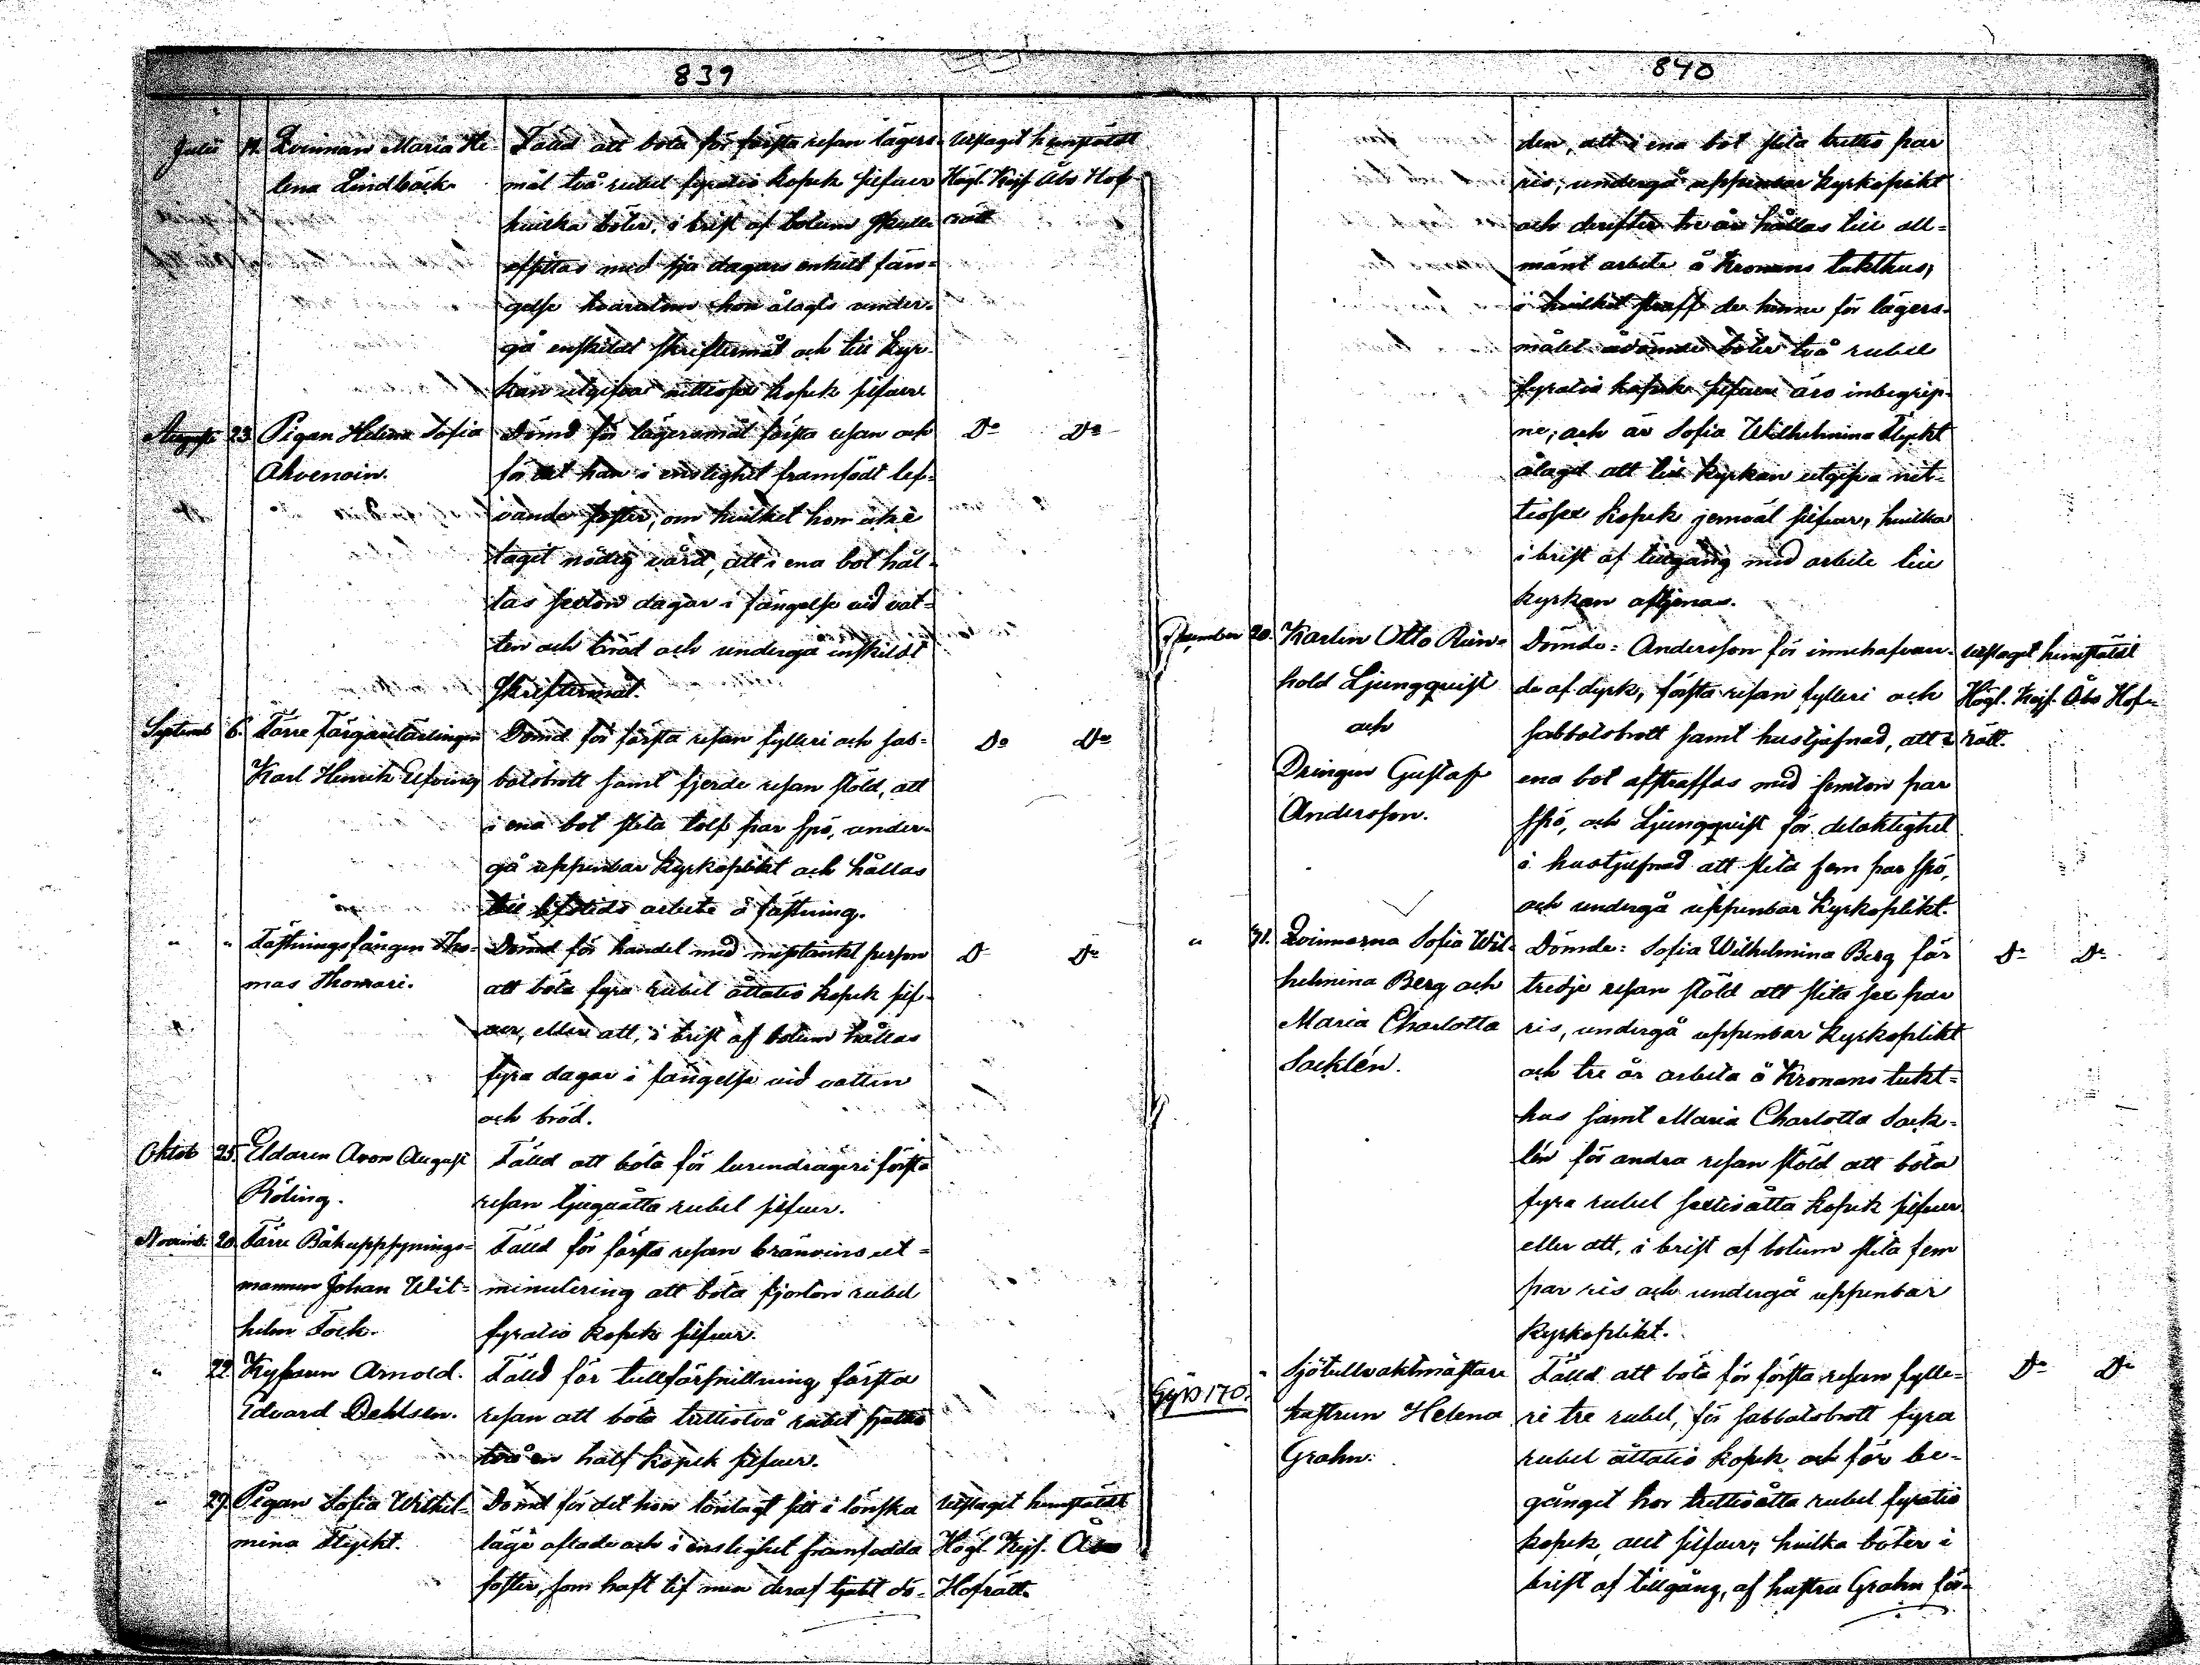 839
Julii 14. Qvinnan Maria He-
lena Lindbäck.
Fälld att böta för första resan lägers-
mål två rubel fyratio kopek silfver
hvilka böter, i brist af botum skulle
afsittas med sju dagars enkelt fän-
gelse hvarutom hon ålagts under-
gå enskildt skriftermål och till Kyr-
kan utgifva nittiosex kopek silfver
Utslaget hemstäldt
Högl. Kejs. Åbo Hof
rätt
Augusti 23. Pigan Helena Sofia
Ahvenoin.
Dömd för lägersmål första resan och
för det hon i enslighet framfödt lef-
vande foster, om hvilket hon icke
taget nödig vård, att i ena bot hål-
las sexton dagar i fängelse vid vat-
ten och bröd och undergå enskildt
Skriftermål.
Do Do
Septemb 6. Förre Färgarelärlingen
Karl Henrik Elfving
Dömd för första resan fylleri och sab-
batsbrott samt fjerde resan stöld, att
i ena bot slita tolf par spö, under-
gå uppenbar Kyrkoplikt och hållas
till lifstids arbete å fästning.
Do Do
" " Fästningsfången Tho-
mas Thomari.
Dömd för handel med misstänkt person
att böta fyra rubel åttatio kopek silf-
ver, eller att, i brist af botum hållas
fyra dagar i fängelse vid vatten
och bröd.
Do Do
Oktob 25. Eldaren Aron August
Röling.
Fälld att böta för lurendrägeri första
resan tjuguåtta rubel silfver.
Novemb. 20. Förre Båkuppsynings-
mannen Johan Wil-
helm Fock.
Fälld för första resan bränvins ut-
minutering att böta fjorton rubel
fyratio kopek silfver.
" 22. Kyparen Arnold
Edvard Dehlsen.
Fälld för tullförsnillning första
resan att böta trettiotvå rubel sjuttio
två en half kopek silfver.
" 27. Pigan Sofia Wilhel-
mina Flyckt.
Dömd för det hon lönlagt sitt i lönska
läge aflade och i enslighet framfödda
foster, som haft lif men deraf ljutit dö-
Utslaget hemstäldt
Högl. Kejs. Åbo
Hofrätt.
840
den, att i ena bot slita trettio par
ris, undergå uppenbar Kyrkoplikt
och derefter tre år hållas till all-
mänt arbete å Kronans tukthus,
i hvilket straff de henne för lägers-
målet ådömde böter två rubel
fyratio kopek silfver äro inbegrip-
ne; och är Sofia Wilhelmina Flyckt
ålagd att till Kyrkan utgifva nit-
tiosex kopek jemväl silfver, hvilka
i brist af tillgång med arbete till
kyrkan aftjenas.
December 20. Karlen Otto Rein-
hold Ljungqvist
och
Drengen Gustaf
Andersson.
Dömde: Andersson för innehafvan-
de af dyrk, första resan fylleri och
sabbatsbrott samt hustjufnad, att i
ena bot afstraffas med femton par
spö, och Ljungqvist för delaktighet
i hustjufnad att slita fem par spö,
och undergå uppenbar Kyrkoplikt.
Utslaget hemstäldt
Högl. Kejs. Åbo Hof-
rätt.
" 31. Qvinnorna Sofia Wil-
helmina Berg och
Maria Charlotta
Sacklén.
Dömde: Sofia Wilhelmina Berg för
tredje resan stöld att slita sex par
ris, undergå uppenbar Kyrkoplikt
och tre år arbeta å Kronans tukt-
hus samt Maria Charlotta Sack-
lén för andra resan stöld att böta
fyra rubel sextioåtta kopek silfver
eller att, i brist af botum slita fem
par ris och undergå uppenbar
Kyrkoplikt.
Do Do
" Sjötullvaktmästare
hustrun Helena
Grahn.
Fälld att böta för första resan fylle-
ri tre rubel, för sabbatsbrott fyra
rubel åttatio kopek och för be-
gånget hor trettioåtta rubel fyratio
kopek, allt silfver; hvilka böter i
brist af tillgång, af hustru Grahn för-
Do Do